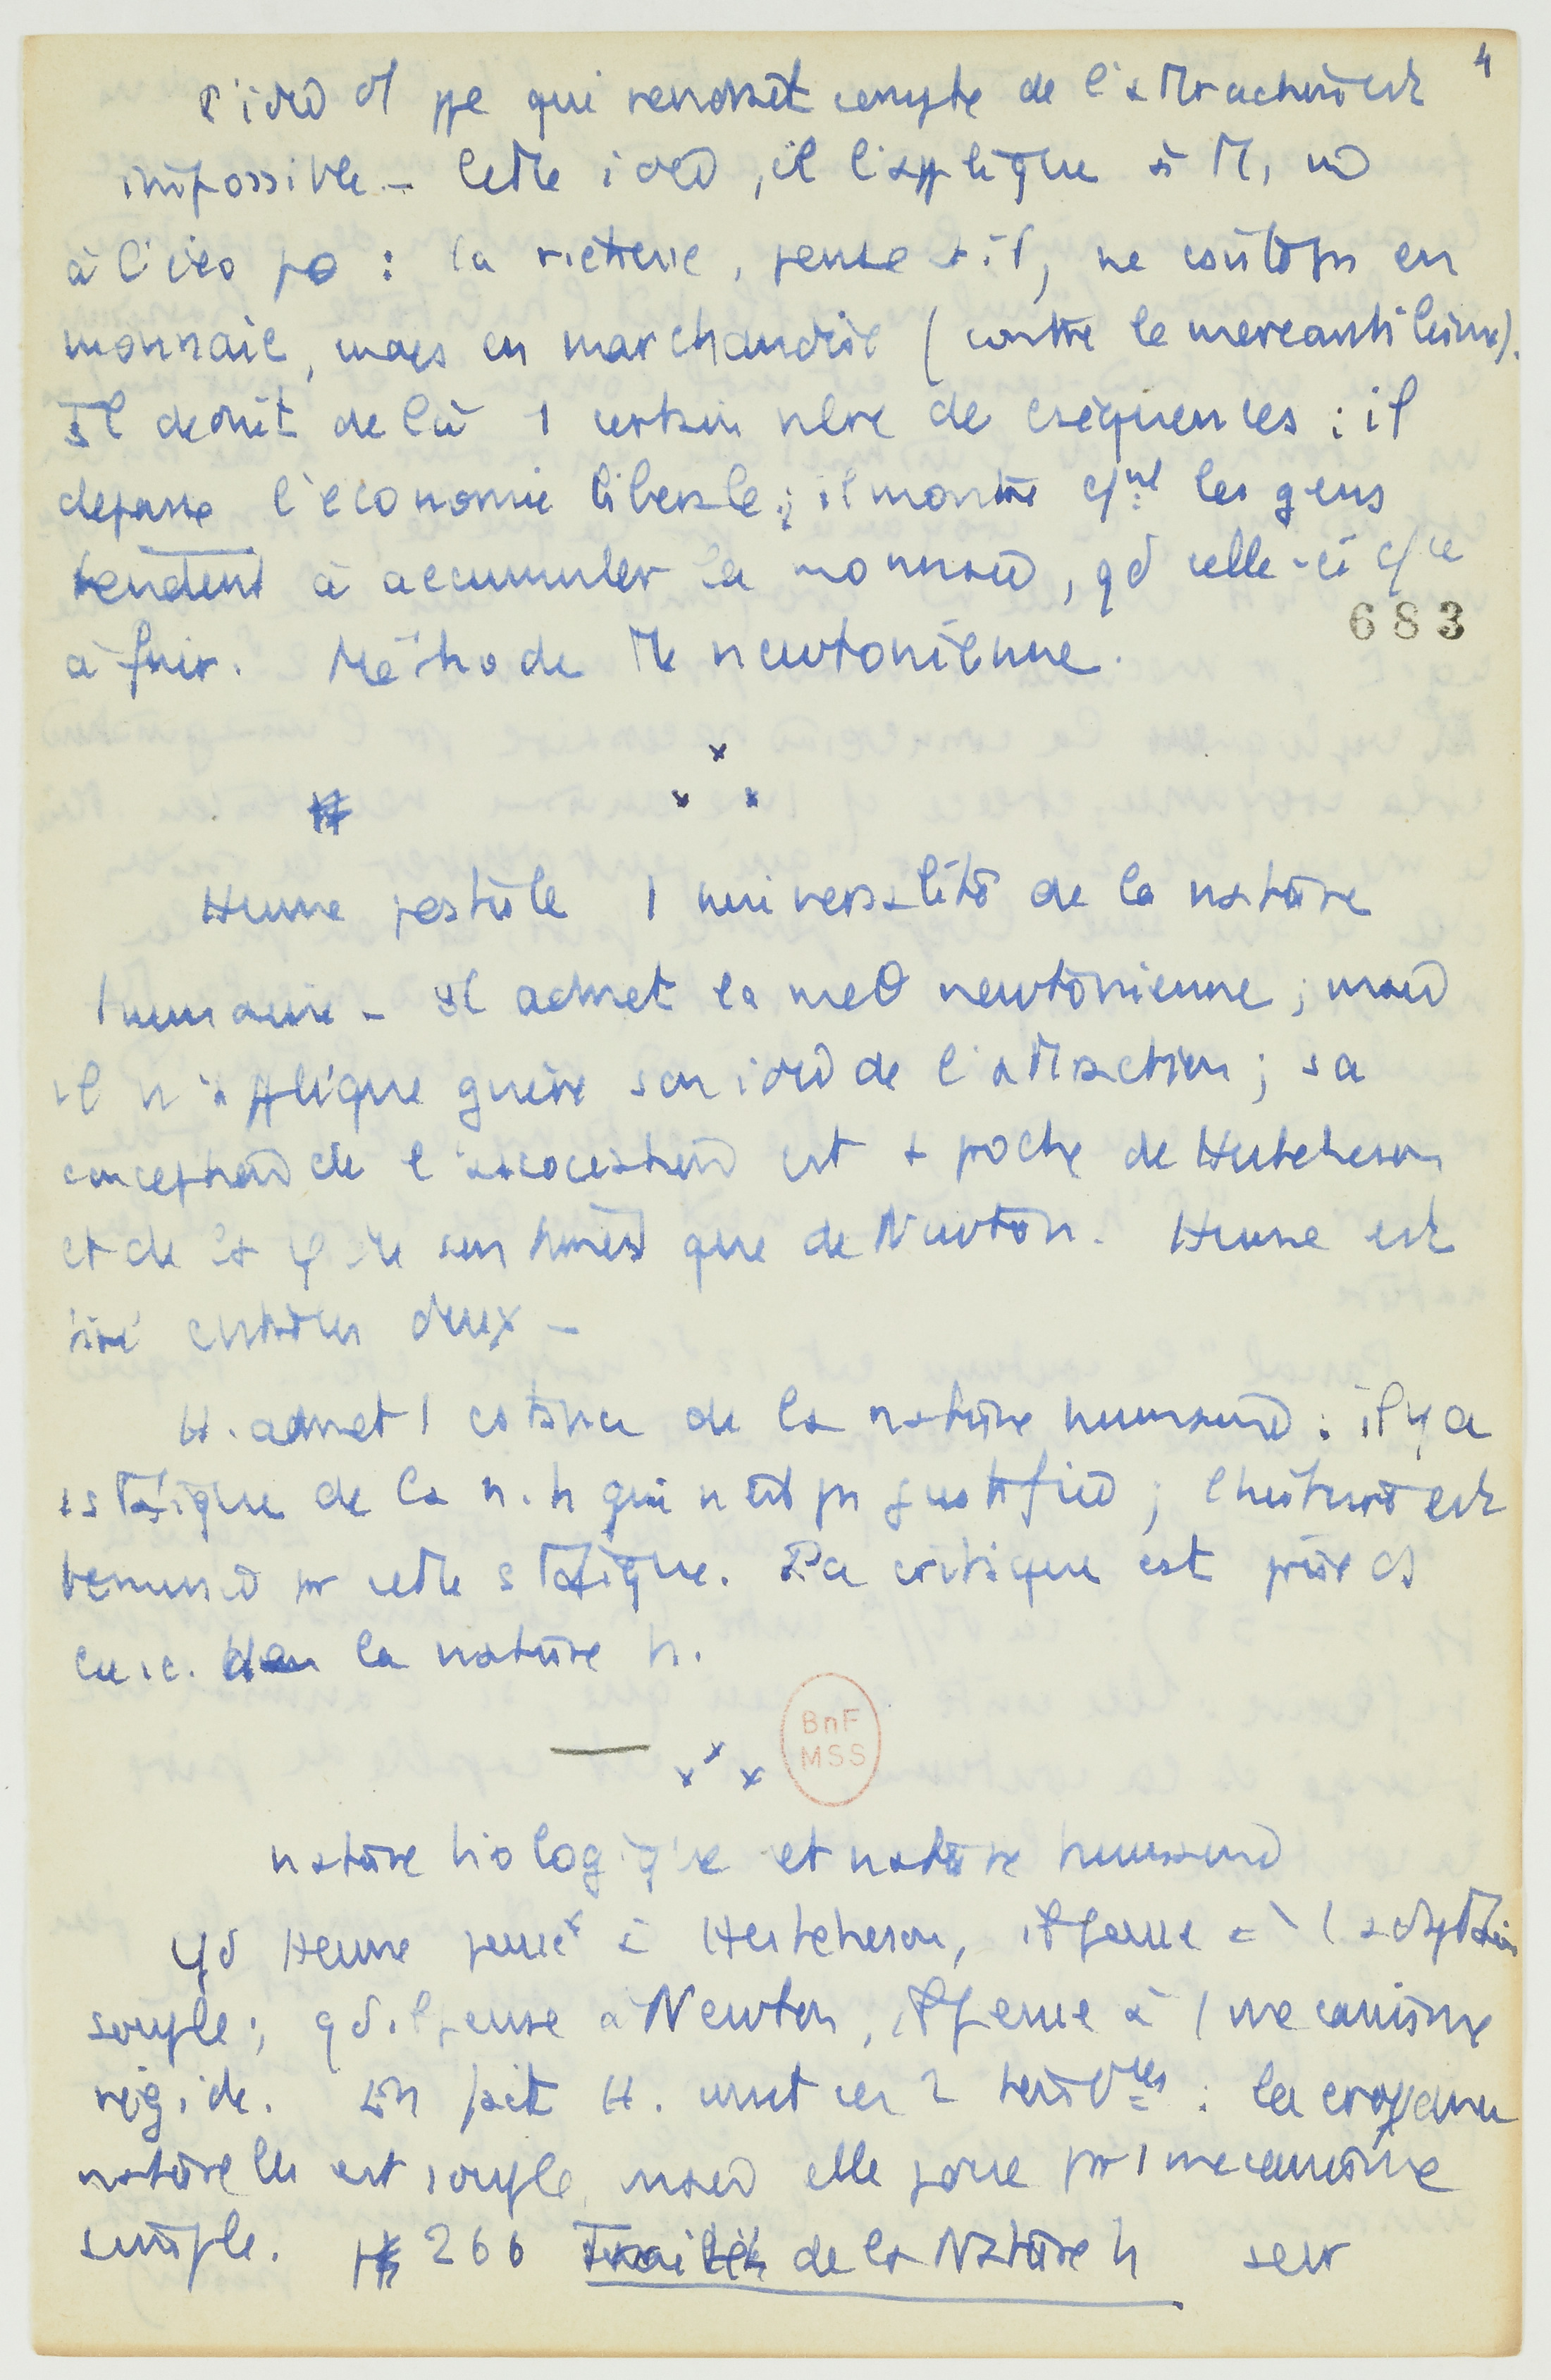 4
l'idée d' ppe qui rendrait compte de l'attraction est
impossible – Cette idée, il l'applique à
à l'éco po : la richesse, pense-t-il, ne consiste pas en
monnaie, mais en marchandise (contre le mercantilisme).
Il déduit de là 1 certain nbre de cséquences : il
dépasse l'économie libérale ; il montre les gens
tendent à accumuler la monnaie, qd celle-ci
à fuir. Méthode newtonienne.
683
x
x x
Hume postule 1 universalité de la nature
humaine – Il admet la newtonienne ; mais
il n'applique guère son idée de l'attraction ; sa
conception de l'association est + proche de Hutcheson
et de que de Newton. Hume est
entre les deux –
H. admet 1 cstance de la nature humaine : il y a
statique de la n. h qui n'est pas justifiée ; l'histoire est
par cette statique. La critique est
la nature h.
BnF
MSS
x x x
nature biologique et nature humaine
Qd Hume pense à Hutcheson, il pense à 1 adaptation
souple ; qd il pense à Newton, il pense à 1 mécanisme
rigide. En fait H. unit ces 2 : la croyance
naturelle est souple, mais elle passe par 1 mécanisme
simple. 266 Traité de la Nature h sur